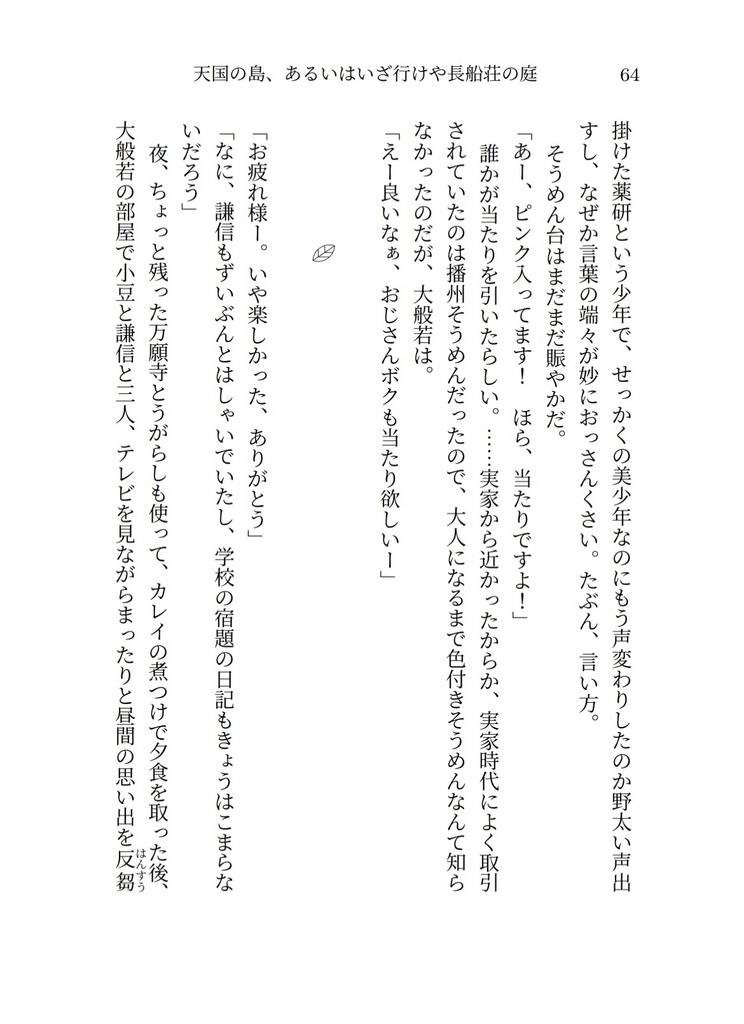 天国の島、あるいはいざ行けや長船荘の庭
64
掛けた薬研という少年で、せっかくの美少年なのにもう声変わりしたのか野太い声出
すし、なぜか言葉の端々が妙におっさんくさい。たぶん、言い方。
　そうめん台はまだまだ賑やかだ。
「あー、ピンク入ってます！　ほら、当たりですよ！」
　誰かが当たりを引いたらしい。……実家から近かったからか、実家時代によく取引
されていたのは播州そうめんだったので、大人になるまで色付きそうめんなんて知ら
なかったのだが、大般若は。
「えー良いなぁ、おじさんボクも当たり欲しいー」
「お疲れ様ー。いや楽しかった、ありがとう」
「なに、謙信もずいぶんとはしゃいでいたし、学校の宿題の日記もきょうはこまらな
いだろう」
　夜、ちょっと残った万願寺とうがらしも使って、カレイの煮つけで夕食を取った後、
大般若の部屋で小豆と謙信と三人、テレビを見ながらまったりと昼間の思い出を反芻
はんすう